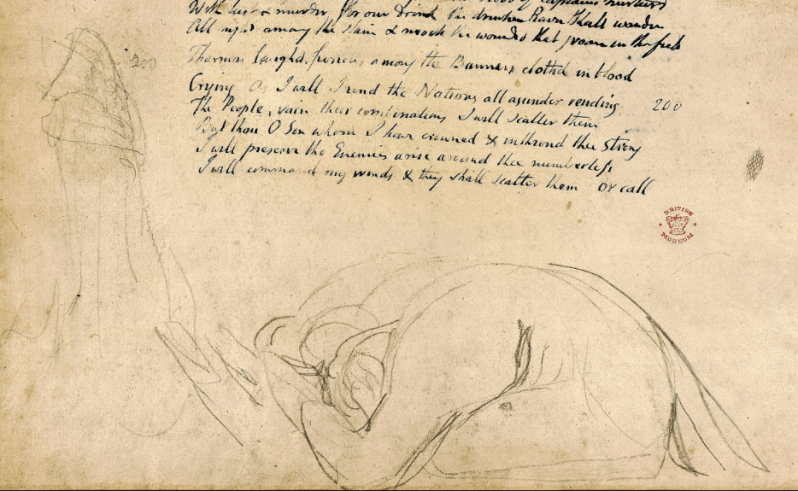 blood of captains nurturd
With lust & murder for our Drink the drunken Raven shall wander
All night among the slain & mock the wounded that groan in the field
200
Tharmas laughd furious among the Banners clothd in blood
Crying As I will I rend the Nations all asunder rending 200
The People, vain their combinations I will scatter them
But thou O Son whom I have crowned & inthrond thee Strong
I will preserve tho Enemies arise around thee numberless
I will command my winds & they shall scatter them or call
BRITISH
MUSEUM